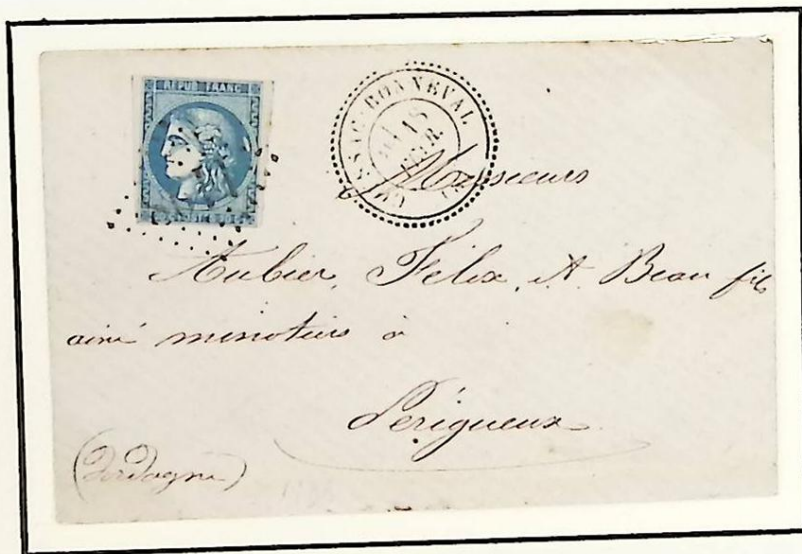 REPUB FRANC
BONNEVAL
18
Messieurs
Aubier, Félix, et Beau fils
ainé minotiers à
Périgueux
(Dordogne)